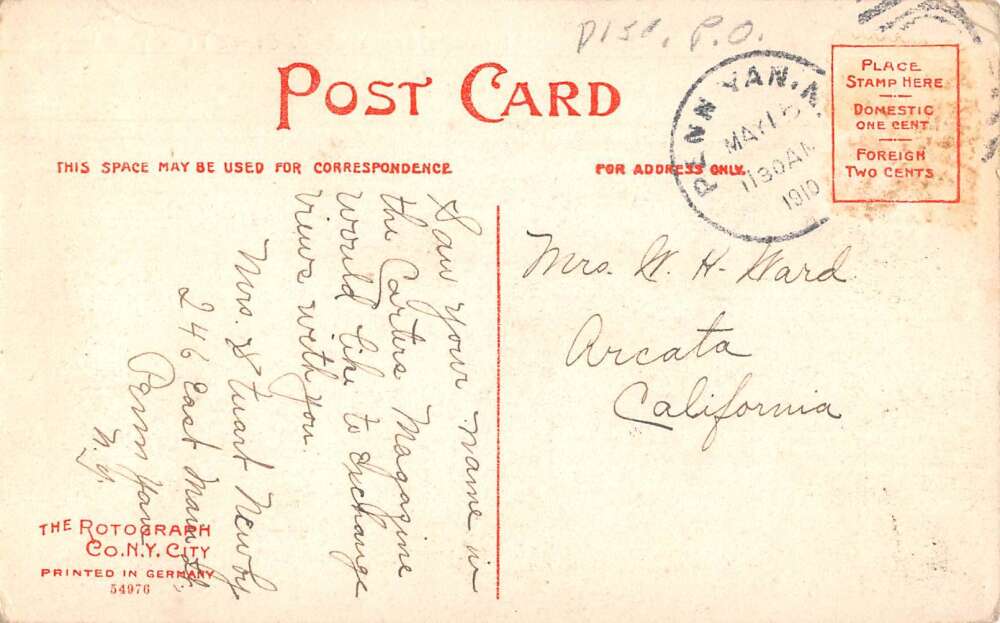 Disc. P.O.
POST CARD
PENN YAN, N
MAY 15
1130 AM
1910
PLACE
STAMP HERE
DOMESTIC
ONE CENT
FOREIGN
TWO CENTS
THIS SPACE MAY BE USED FOR CORRESPONDENCE
FOR ADDRESS ONLY.
Saw your name in
the Carters Magazine
would like to Exchange
views with you.
Mrs. Stuart Newby
246 East Main St.
Penn Yan
N.Y.
Mrs. W. H. Ward
Arcata
California
THE ROTOGRAPH
CO. N.Y. CITY
PRINTED IN GERMANY
54976